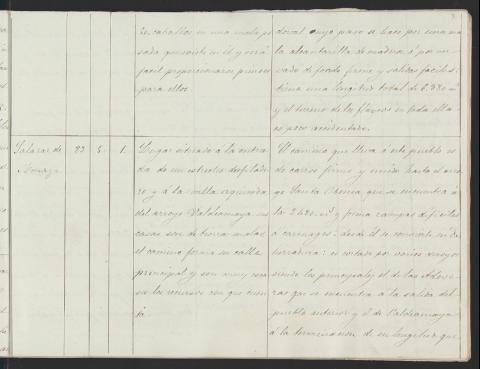 20 caballos en una mala po
sada que existe en él y será
facil proporcionarse pienso
para ellos.
dorcal cuyo paso se hace por una ma
la alcantarilla de madera ó por un
vado de fondo firme y salidas faciles:
tiene una longitud total de
y el terreno de los flancos en toda ella
es poco accidentado.
Salazar de
Amaya
1.
Lugar situado á la entra
da de un estrecho desfilade
ro y á la orilla izquierda
del arroyo Valdeamaya: sus
casas son de tierra malas,
el camino forma su calle
principal y son muy esca
sos los recursos con que cuen
ta.
El camino que lleva á este pueblo es
de carros firme y unido hasta el arro
yo Santa que se encuentra á
los y forma rampas dificiles
á carruages: desde él se convierte en de
herradura: es cortado por varios arroyos
siendo los principales el de las
ras que se encuentra á la salida del
pueblo anterior y el de Valdeamaya
á la terminacion de su longitud que